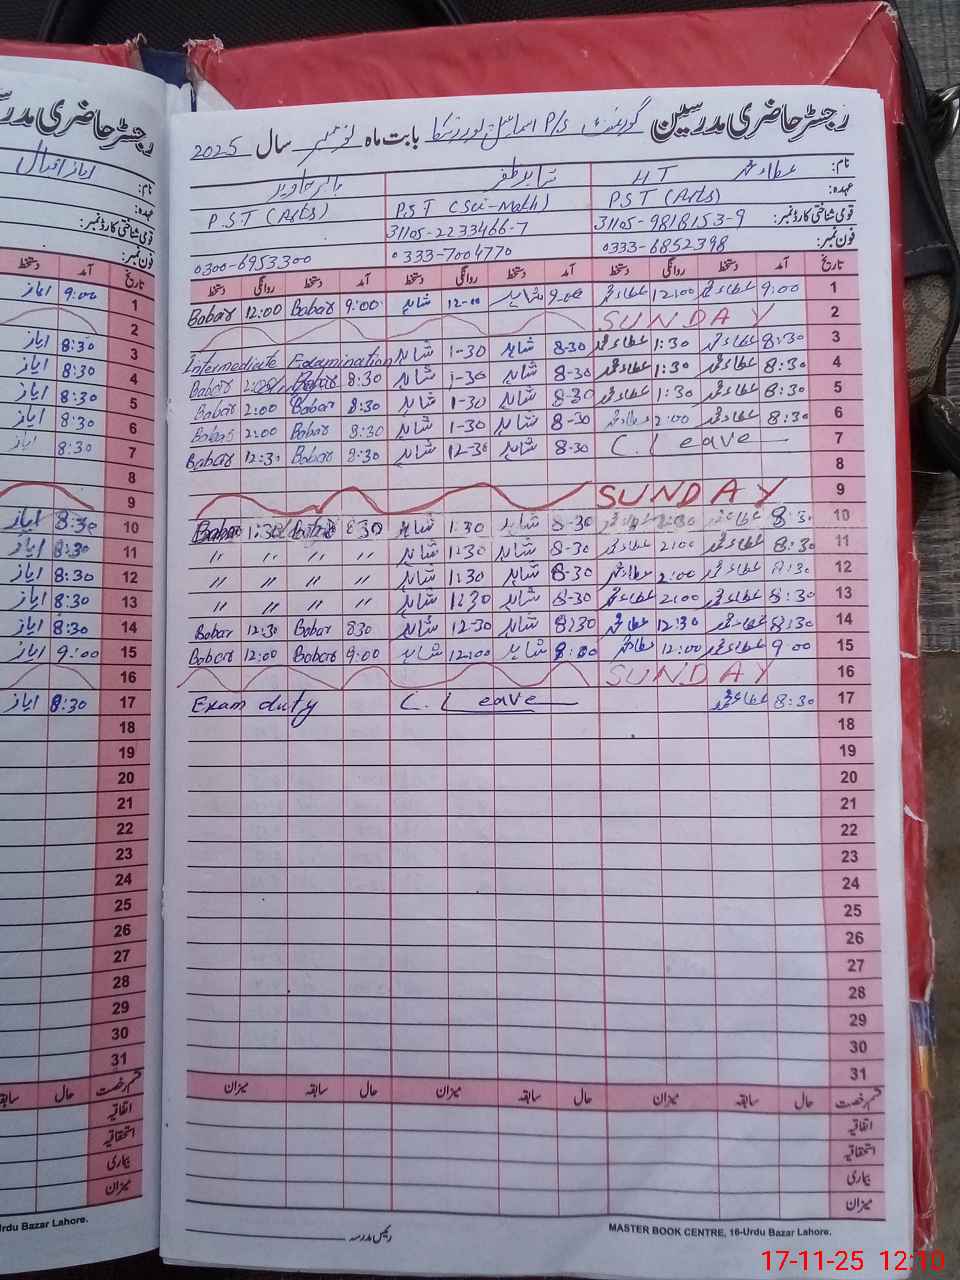 رجسٹر حاضری مدرسین گورنمنٹ P/S اسماعیل بابت ماہ نومبر سال 2025
نام: عطاء محمد شاہد ظفر بابر جاوید
عہدہ: H T P.S.T (Arts) P.S.T (Sci-Math) P.S.T (Arts)
قومی شناختی کارڈ نمبر: 31105-9818153-9 31105-2233466-7
فون نمبر: 0333-6852398 0333-7004770 0300-6953300
تاریخ آمد دستخط روانگی دستخط آمد دستخط روانگی دستخط آمد دستخط روانگی دستخط
1 9:00 عطاء محمد 12:00 عطاء محمد 9:00 شاہد 12-00 شاہد 9:00 Babar 12:00 Babar
2 SUNDAY
3 8:30 عطاء محمد 1:30 عطاء محمد 8-30 شاہد 1-30 شاہد Intermediate Examination
4 8:30 عطاء محمد 1:30 عطاء محمد 8-30 شاہد 1-30 شاہد 8:30 Babar
5 8:30 عطاء محمد 1:30 عطاء محمد 8-30 شاہد 1-30 شاہد 8:30 Babar 2:00 Babar
6 8:30 عطاء محمد 2:00 عطاء محمد 8-30 شاہد 1-30 شاہد 8:30 Babar 2:00 Babar
7 C. Leave 8-30 شاہد 12-30 شاہد 8:30 Babar 12:30 Babar
8
9 SUNDAY
10 8:30 عطاء محمد عطاء محمد 8-30 شاہد 1:30 شاہد 8:30 Babar 1:30 Babar
11 8:30 عطاء محمد 2:00 عطاء محمد 8-30 شاہد 1:30 شاہد " " " "
12 8:30 عطاء محمد 2:00 عطاء محمد 8-30 شاہد 1:30 شاہد " " " "
13 8:30 عطاء محمد 2:00 عطاء محمد 8-30 شاہد 1:30 شاہد " " " "
14 8:30 عطاء محمد 12:30 عطاء محمد 8:30 شاہد 12-30 شاہد 830 Babar 12:30 Babar
15 9:00 عطاء محمد 12:00 عطاء محمد شاہد 12:00 شاہد 9:00 Babar 12:00 Babar
16 SUNDAY
17 8:30 عطاء محمد C. Leave Exam duty
18
19
20
21
22
23
24
25
26
27
28
29
30
31
قسم رخصت حال سابقہ میزان حال سابقہ میزان حال سابقہ میزان
اتفاقیہ
استحقاقیہ
بیماری
میزان
MASTER BOOK CENTRE, 16-Urdu Bazar Lahore.
رئیس مدرسہ
رجسٹر حاضری
نام: ایاز اقبال
عہدہ:
قومی شناختی کارڈ نمبر:
فون نمبر:
تاریخ آمد دستخط
1 9:00 ایاز
2
3 8:30 ایاز
4 8:30 ایاز
5 8:30 ایاز
6 8:30 ایاز
7 8:30 ایاز
8
9
10 8:30 ایاز
11 8:30 ایاز
12 8:30 ایاز
13 8:30 ایاز
14 8:30 ایاز
15 9:00 ایاز
16
17 8:30 ایاز
18
19
20
21
22
23
24
25
26
27
28
29
30
31
قسم رخصت حال سابقہ
اتفاقیہ
استحقاقیہ
بیماری
میزان
Urdu Bazar Lahore.
17-11-25 12:10